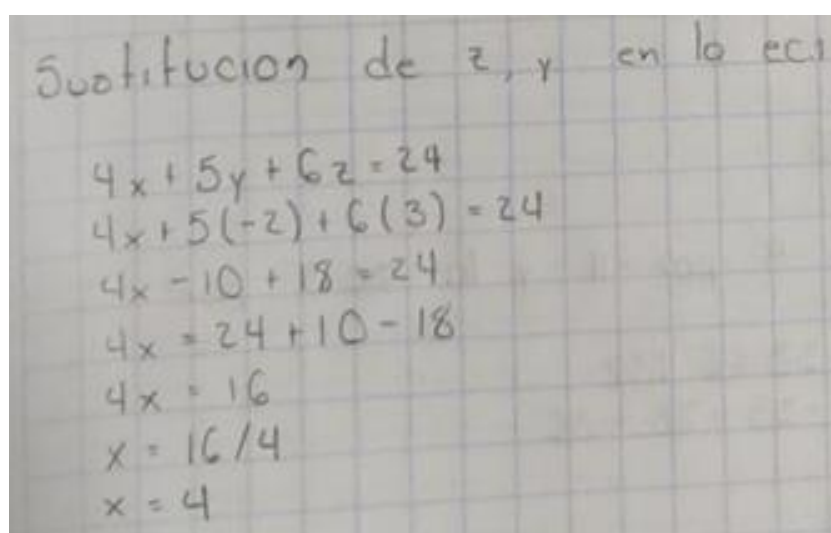 Sustitucion de z, y en la ec1
4x + 5y + 6z = 24
4x + 5(-2) + 6(3) = 24
4x - 10 + 18 = 24
4x = 24 + 10 - 18
4x = 16
x = 16/4
x = 4